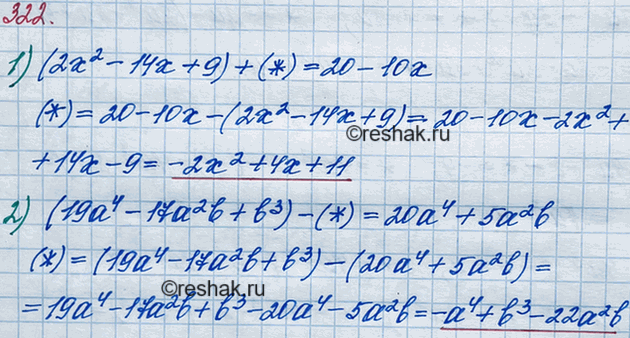 322.
1) (2x² − 14x + 9) + (*) = 20 − 10x
(*) = 20 − 10x − (2x² − 14x + 9) = 20 − 10x − 2x² +
©reshak.ru
+ 14x − 9 = −2x² + 4x + 11
2) (19a⁴ − 17a²b + b³) − (*) = 20a⁴ + 5a²b
(*) = (19a⁴ − 17a²b + b³) − (20a⁴ + 5a²b) =
©reshak.ru
= 19a⁴ − 17a²b + b³ − 20a⁴ − 5a²b = −a⁴ + b³ − 22a²b